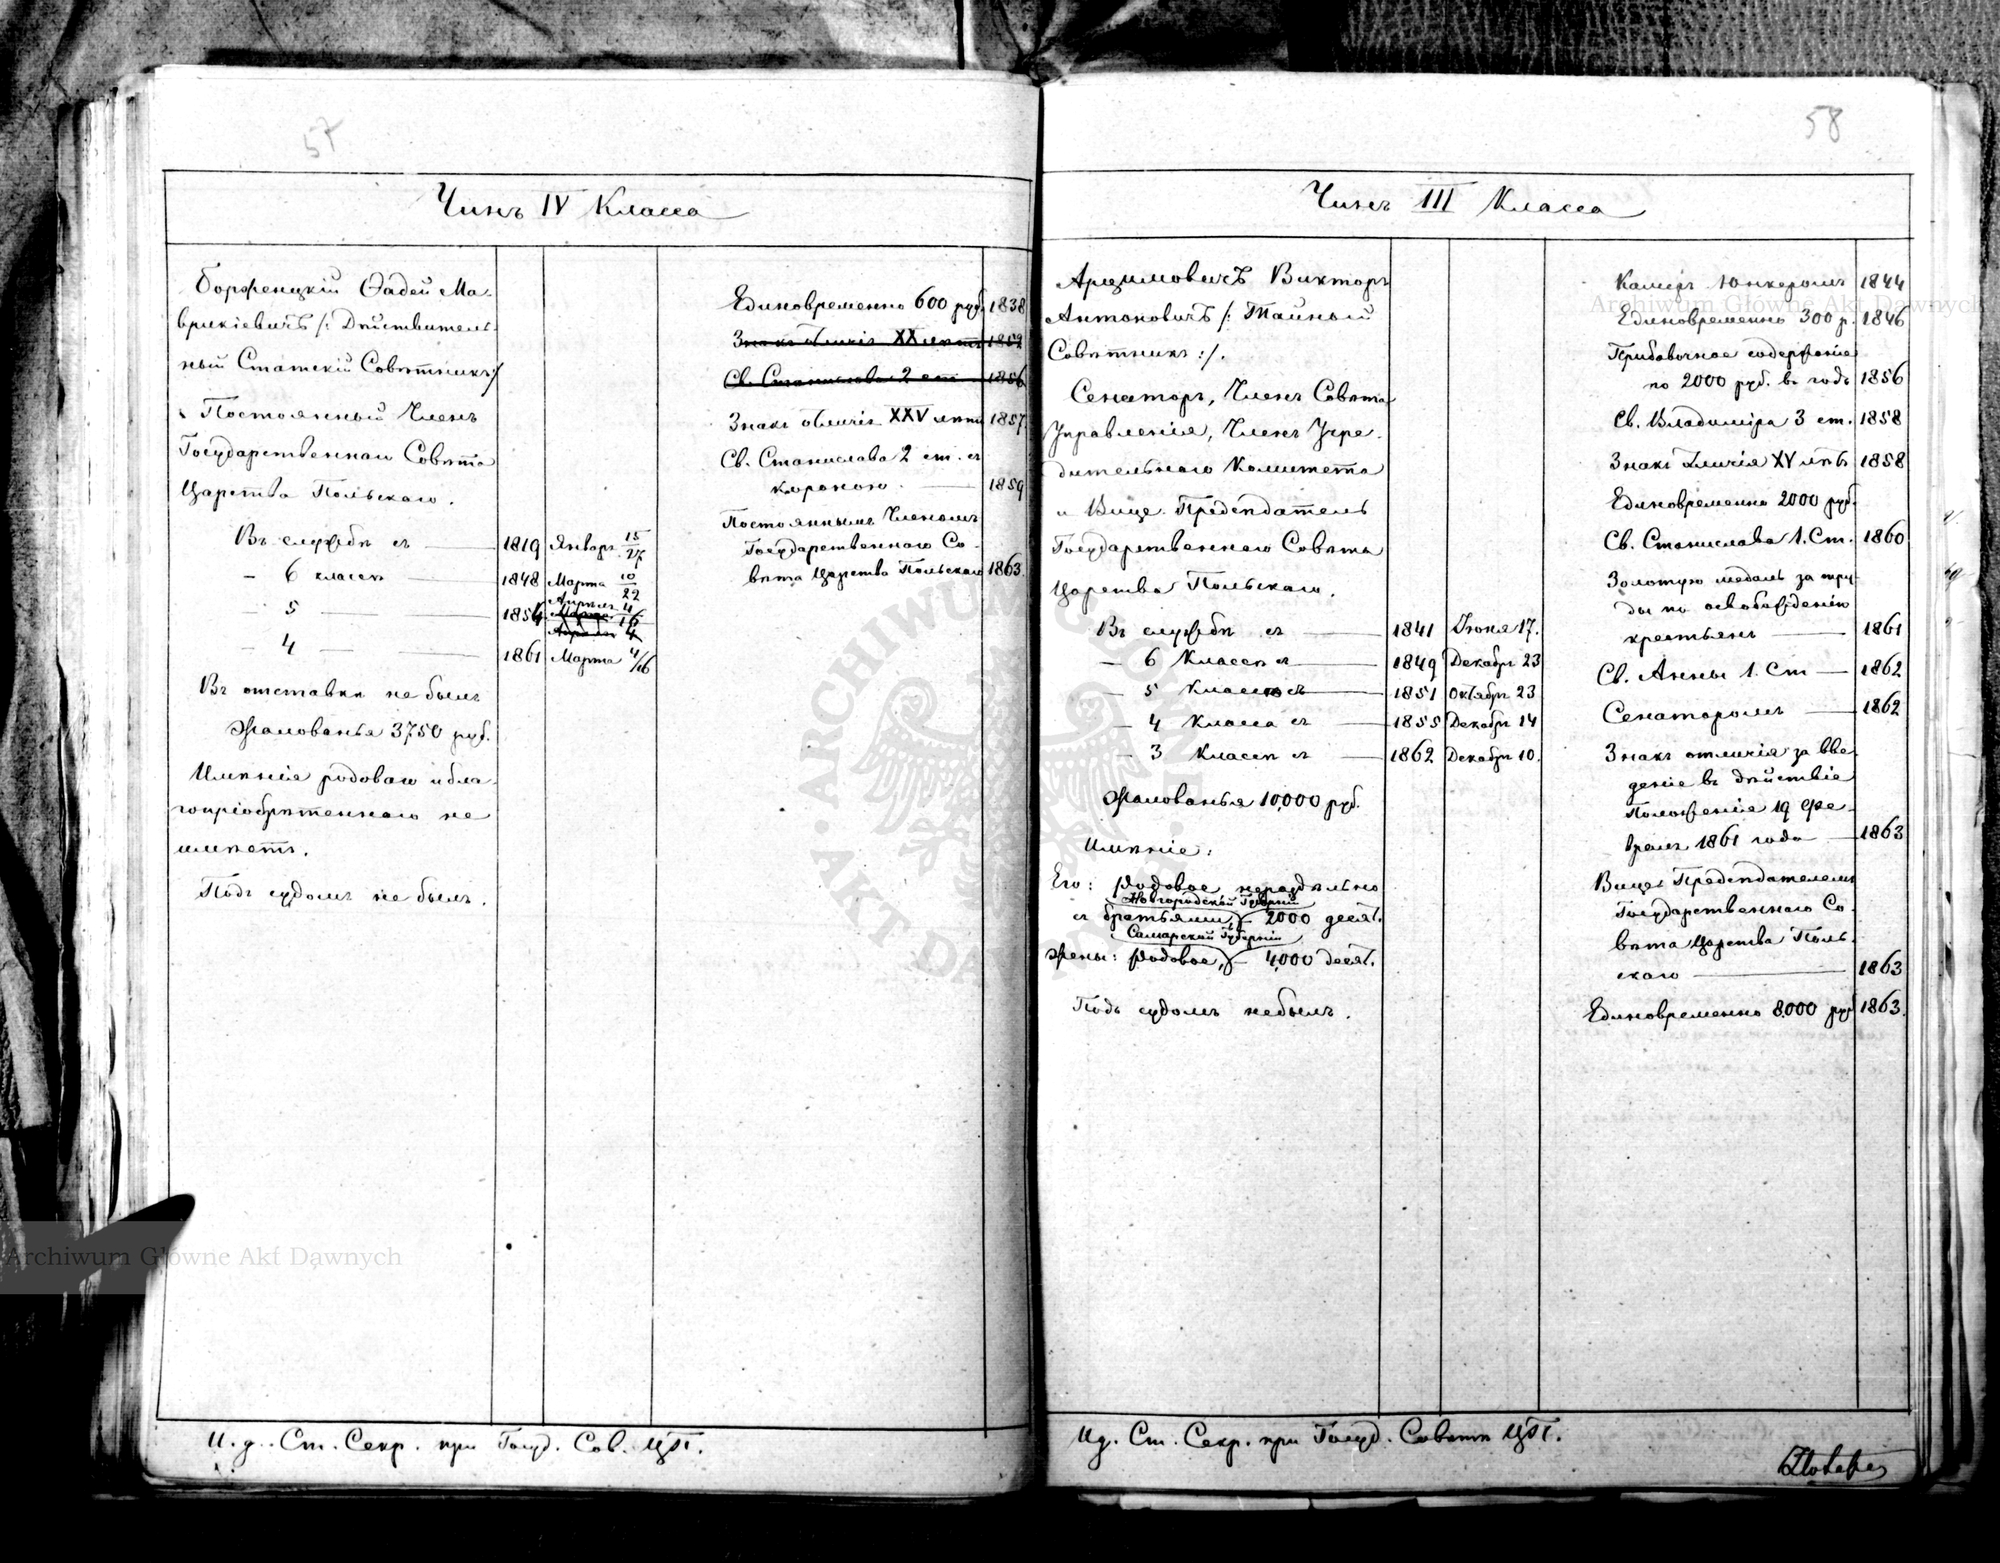 57
Чинъ IV Класса
Борженцкій Фадей Ма-
врикіевичъ /: Дѣйствитель-
ный Статскій Совѣтникъ :/
Постоянный Членъ
Государственнаго Совѣта
Царства Польскаго.
Въ службѣ съ — 1819 Январъ 15/27
— 6 классѣ — 1848 Марта 10/22
— 5 — 1854 Апрѣль 4/16
— 4 — 1861 Марта 4/16
Въ отставкѣ не былъ
Жалованья 3750 руб.
Имѣнія родоваго и бла-
гопріобрѣтеннаго не
имѣетъ.
Подъ судомъ не былъ.
Единовременно 600 руб. 1838
Знакъ отличія XX лѣтъ 1852
Св. Станислава 2 ст. 1856
Знакъ отличія XXV лѣтъ 1857.
Св. Станислава 2 ст. съ
короною. — 1859
Постояннымъ Членомъ
Государственнаго Со-
вѣта Царства Польскаго 1863.
И. д. Ст. Секр. при Госуд. Сов. ЦП.
58
Чинъ III Класса
Арцимовичъ Викторъ
Антоновичъ /: Тайный
Совѣтникъ :/.
Сенаторъ, Членъ Совѣта
Управленія, Членъ Учре-
дительнаго Комитета
и Вице-Предсѣдатель
Государственнаго Совѣта
Царства Польскаго.
Въ службѣ съ — 1841 Іюня 17.
— 6 Классѣ съ — 1849 Декабр. 23
— 5 Класса съ — 1851 Октябр. 23
— 4 Класса съ — 1855 Декабр. 14
— 3 Классѣ съ — 1862 Декабр. 10.
Жалованья 10,000 руб.
Имѣніе:
Его: Родовое нераздѣльно
Новгородской Губерніи
съ братьями, — 2000 десят.
Самарской Губерніи
Жены: Родовое, — 4,000 десят.
Подъ судомъ не былъ.
Камеръ Юнкеромъ 1844
Единовременно 300 р. 1846
Прибавочное содержаніе
по 2000 руб. въ годъ 1856
Св. Владиміра 3 ст. 1858
Знакъ отличія XV лѣтъ 1858
Единовременно 2000 руб.
Св. Станислава 1. Ст. 1860
Золотую медаль за тру-
ды по освобожденію
крестьянъ — 1861
Св. Анны 1. Ст — 1862
Сенаторомъ — 1862
Знакъ отличія за вве-
деніе въ дѣйствіе
Положенія 19 Фе-
враля 1861 года — 1863
Вице-Предсѣдателемъ
Государственнаго Со-
вѣта Царства Поль-
скаго — 1863
Единовременно 8.000 руб 1863.
И. д. Ст. Секр. при Госуд. Совѣтѣ ЦП.
Archiwum Główne Akt Dawnych
Archiwum Główne Akt Dawnych
ARCHIWUM GŁÓWNE AKT DAWNYCH